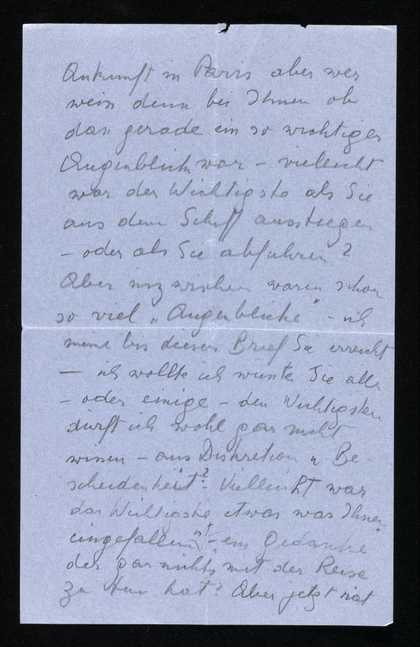 Ankunft in Paris aber wer
weiss denn bei Ihnen ob
das gerade ein so wichtiger
Augenblick war – vielleicht
war der Wichtigste als Sie
aus dem Schiff ausstiegen
– oder als Sie abfuhren?
Aber inzwischen waren schon
so viel „Augenblicke" – ich
meine bis dieser Brief Sie erreicht
– ich wollte ich wüsste Sie alle
– oder einige – den Wichtigsten
dürft ich wohl gar nicht
wissen – aus Diskretion u Be-
scheidenheit? Vielleicht war
das Wichtigste etwas was Ihnen
eingefallen ist – ein Gedanke
der gar nichts mit der Reise
zu tun hat? Aber jetzt